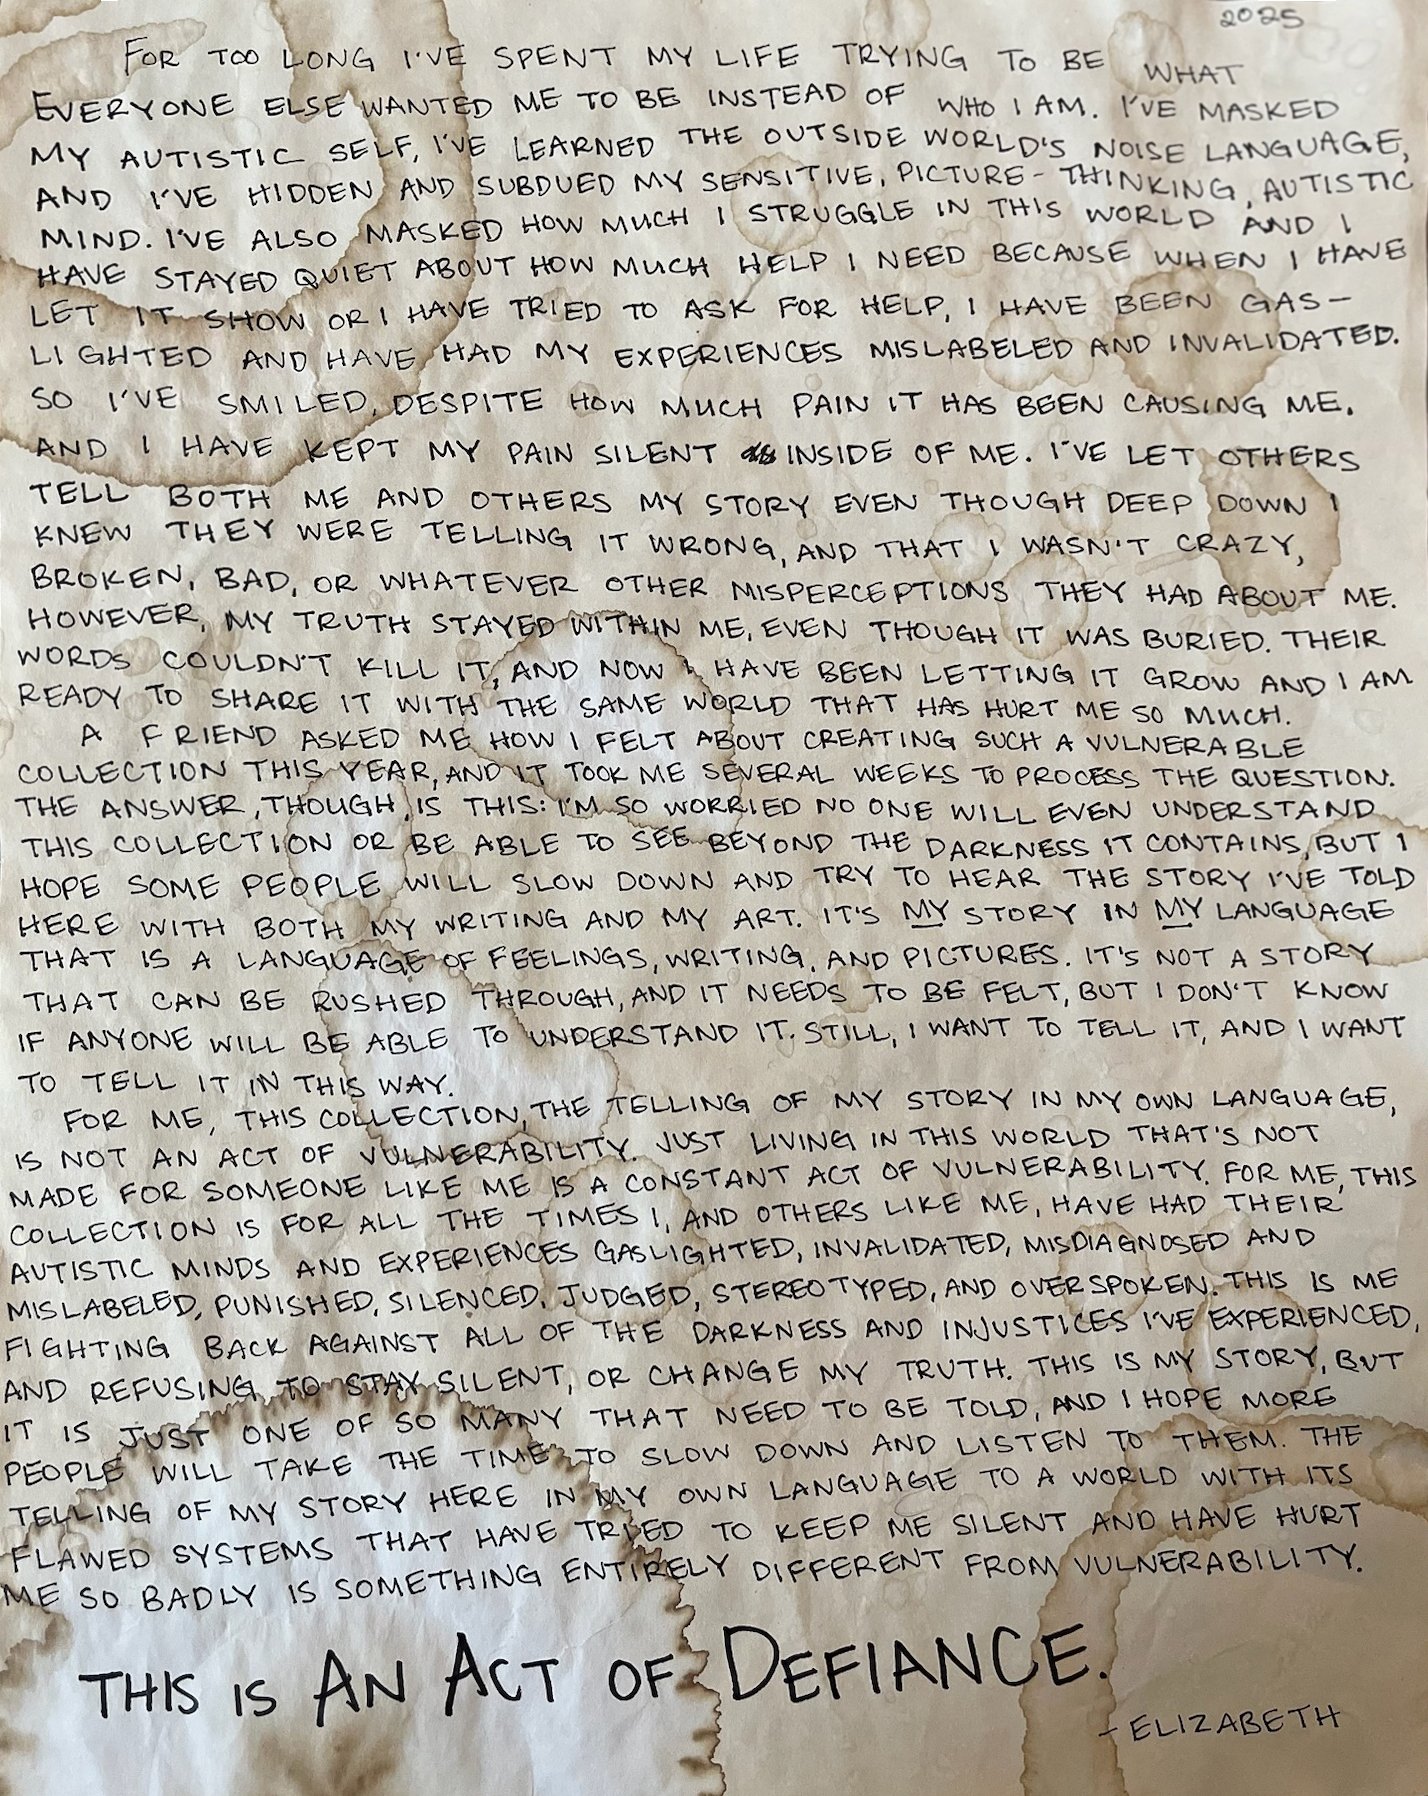 2025
FOR TOO LONG I'VE SPENT MY LIFE TRYING TO BE WHAT
EVERYONE ELSE WANTED ME TO BE INSTEAD OF WHO I AM. I'VE MASKED
MY AUTISTIC SELF, I'VE LEARNED THE OUTSIDE WORLD'S NOISE LANGUAGE,
AND I'VE HIDDEN AND SUBDUED MY SENSITIVE, PICTURE-THINKING, AUTISTIC
MIND. I'VE ALSO MASKED HOW MUCH I STRUGGLE IN THIS WORLD AND I
HAVE STAYED QUIET ABOUT HOW MUCH HELP I NEED BECAUSE WHEN I HAVE
LET IT SHOW OR I HAVE TRIED TO ASK FOR HELP, I HAVE BEEN GAS-
LIGHTED AND HAVE HAD MY EXPERIENCES MISLABELED AND INVALIDATED.
SO I'VE SMILED, DESPITE HOW MUCH PAIN IT HAS BEEN CAUSING ME.
AND I HAVE KEPT MY PAIN SILENT INSIDE OF ME. I'VE LET OTHERS
TELL BOTH ME AND OTHERS MY STORY EVEN THOUGH DEEP DOWN I
KNEW THEY WERE TELLING IT WRONG, AND THAT I WASN'T CRAZY,
BROKEN, BAD, OR WHATEVER OTHER MISPERCEPTIONS THEY HAD ABOUT ME.
HOWEVER, MY TRUTH STAYED WITHIN ME, EVEN THOUGH IT WAS BURIED. THEIR
WORDS COULDN'T KILL IT, AND NOW I HAVE BEEN LETTING IT GROW AND I AM
READY TO SHARE IT WITH THE SAME WORLD THAT HAS HURT ME SO MUCH.
A FRIEND ASKED ME HOW I FELT ABOUT CREATING SUCH A VULNERABLE
COLLECTION THIS YEAR, AND IT TOOK ME SEVERAL WEEKS TO PROCESS THE QUESTION.
THE ANSWER, THOUGH, IS THIS: I'M SO WORRIED NO ONE WILL EVEN UNDERSTAND
THIS COLLECTION OR BE ABLE TO SEE BEYOND THE DARKNESS IT CONTAINS, BUT I
HOPE SOME PEOPLE WILL SLOW DOWN AND TRY TO HEAR THE STORY I'VE TOLD
HERE WITH BOTH MY WRITING AND MY ART. IT'S MY STORY IN MY LANGUAGE
THAT IS A LANGUAGE OF FEELINGS, WRITING, AND PICTURES. IT'S NOT A STORY
THAT CAN BE RUSHED THROUGH, AND IT NEEDS TO BE FELT, BUT I DON'T KNOW
IF ANYONE WILL BE ABLE TO UNDERSTAND IT. STILL, I WANT TO TELL IT, AND I WANT
TO TELL IT IN THIS WAY.
FOR ME, THIS COLLECTION, THE TELLING OF MY STORY IN MY OWN LANGUAGE,
IS NOT AN ACT OF VULNERABILITY. JUST LIVING IN THIS WORLD THAT'S NOT
MADE FOR SOMEONE LIKE ME IS A CONSTANT ACT OF VULNERABILITY. FOR ME, THIS
COLLECTION IS FOR ALL THE TIMES I, AND OTHERS LIKE ME, HAVE HAD THEIR
AUTISTIC MINDS AND EXPERIENCES GASLIGHTED, INVALIDATED, MISDIAGNOSED AND
MISLABELED, PUNISHED, SILENCED, JUDGED, STEREOTYPED, AND OVERSPOKEN. THIS IS ME
FIGHTING BACK AGAINST ALL OF THE DARKNESS AND INJUSTICES I'VE EXPERIENCED,
AND REFUSING TO STAY SILENT, OR CHANGE MY TRUTH. THIS IS MY STORY, BUT
IT IS JUST ONE OF SO MANY THAT NEED TO BE TOLD, AND I HOPE MORE
PEOPLE WILL TAKE THE TIME TO SLOW DOWN AND LISTEN TO THEM. THE
TELLING OF MY STORY HERE IN MY OWN LANGUAGE TO A WORLD WITH ITS
FLAWED SYSTEMS THAT HAVE TRIED TO KEEP ME SILENT AND HAVE HURT
ME SO BADLY IS SOMETHING ENTIRELY DIFFERENT FROM VULNERABILITY.
THIS IS AN ACT OF DEFIANCE.
- ELIZABETH